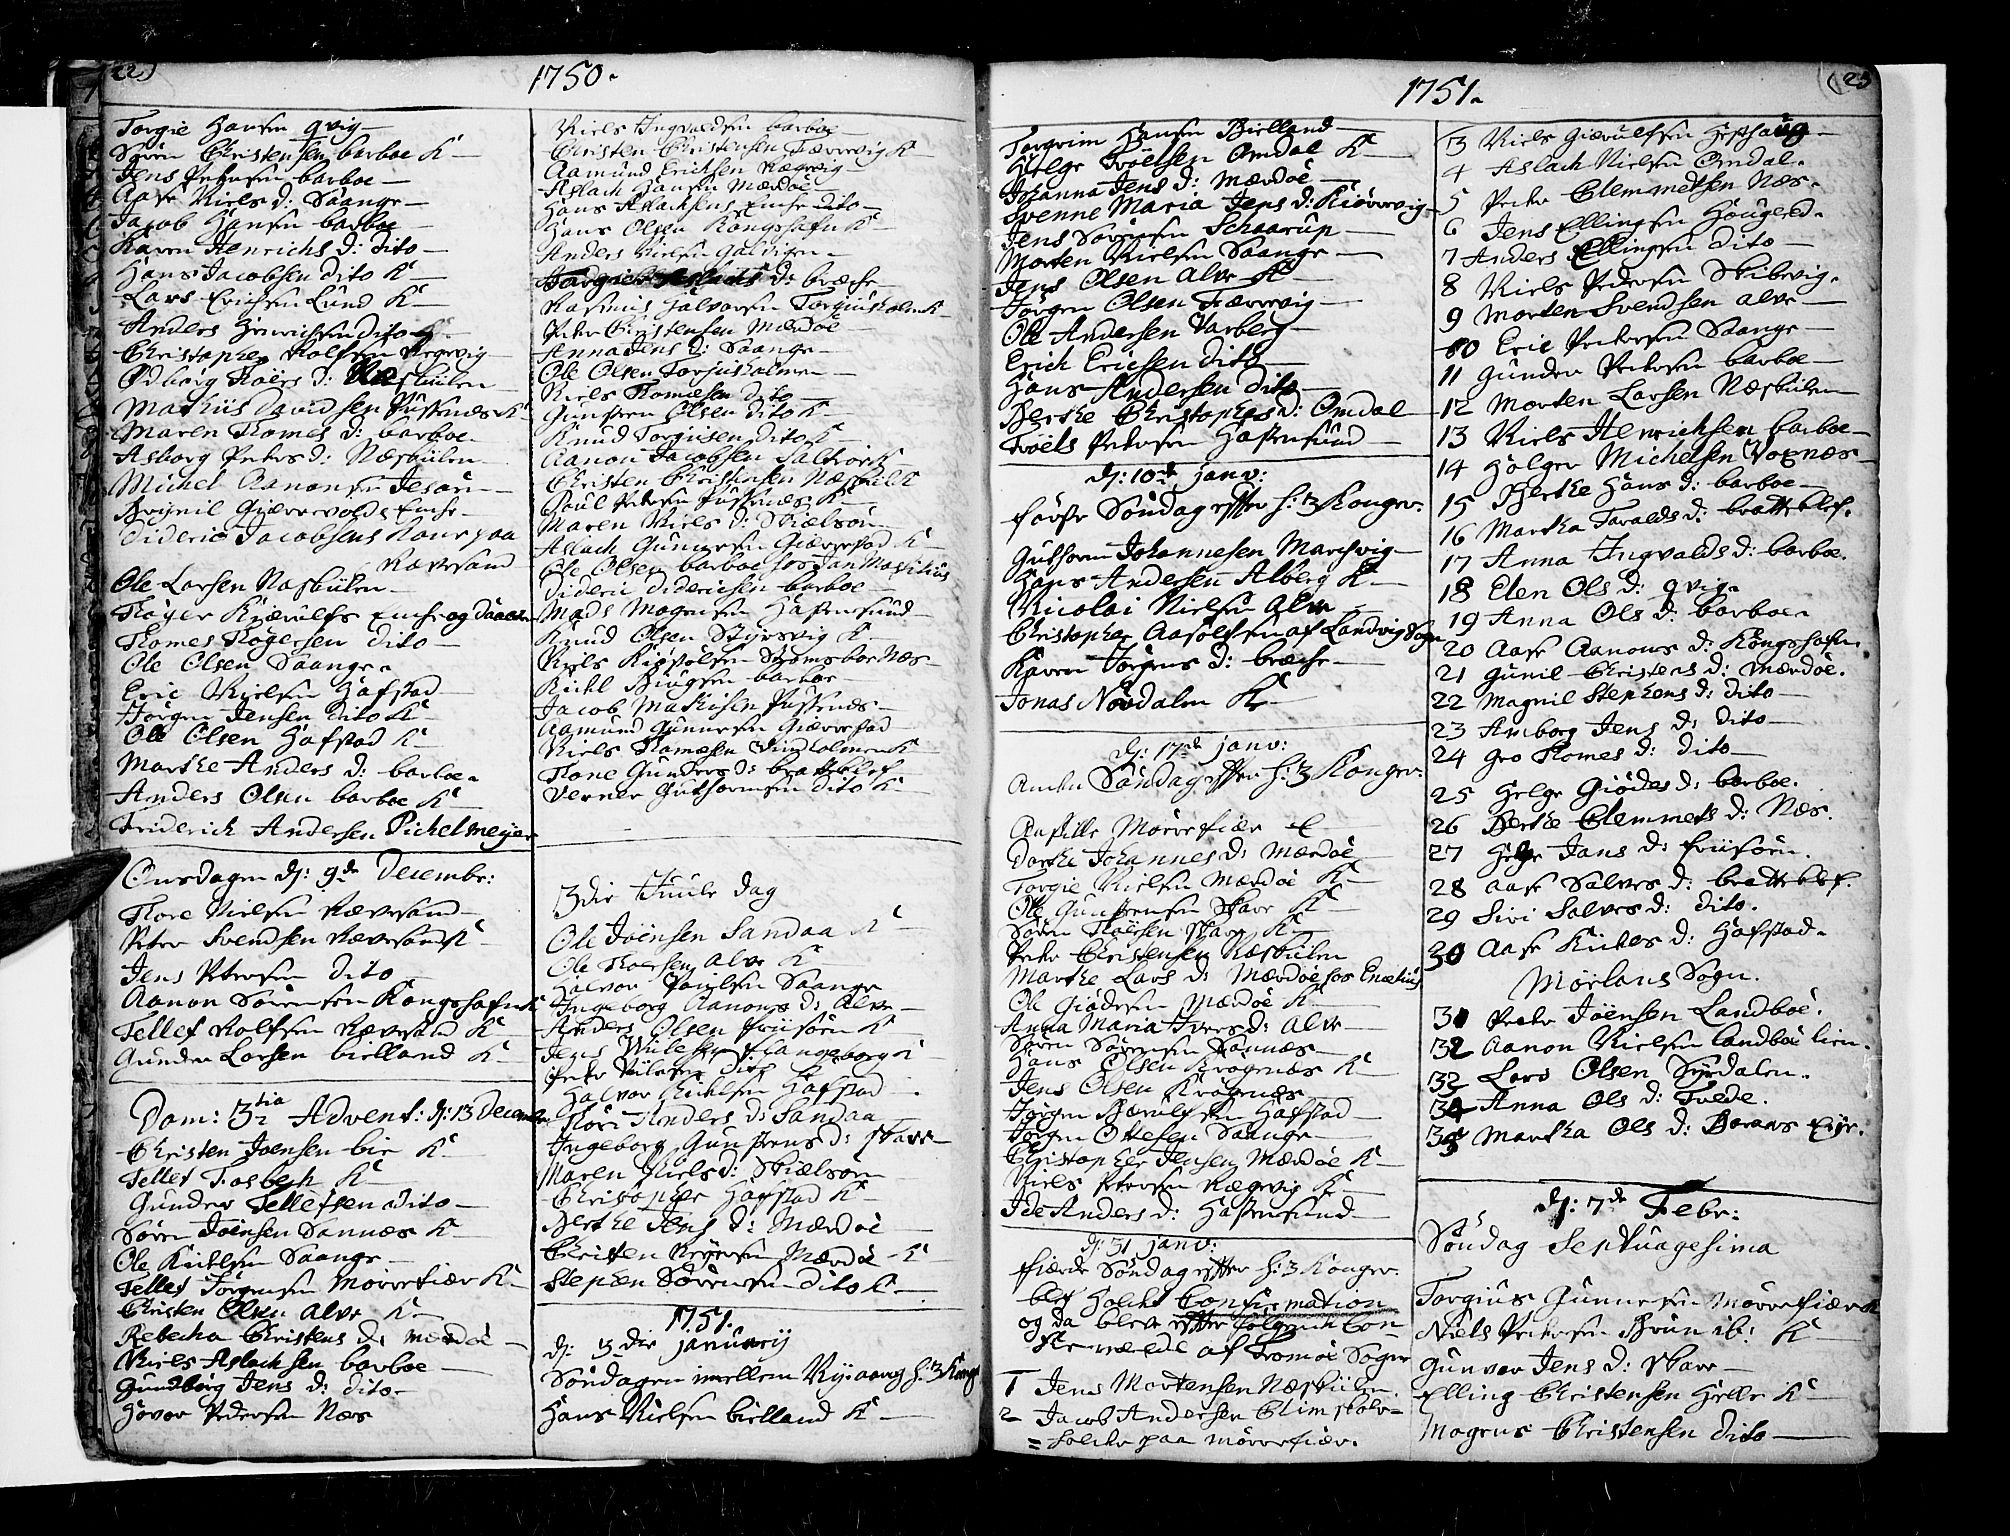 22)
1750.
Torgie Hansen qvig
Sören Christensen barboe K
Jens Petersen barboe
Aase Niels d: Saange
Jacob Hansen barboe
Karen Henrichs d: dito
Hans Jacobsen dito K
Lars Erichsen Lund K
Anders Hinrichsen dito K
Christopher Rolfsen Regevig
Ødborg Thoers d: Næsbülen
Mathiis Davidsen Pussnæs K
Maren Thomes d: barboe
Asborg Peters d: Næsbülen
Michel Aanonsen Jesöe
Brynil Giærrevolds Encke
Dideric Jacobsens Kone paa
Rævesand
Ole Larsen Næsbülen
Thoger Knærulfs Encke og Daatter
Thomes Thogersen dito
Ole Olsen Saange
Eric Nielsen Hafstad
Jörgen Jensen dito K
Ole Olsen Hafstad K
Marthe Anders d: barboe
Anders Olsen barboe K
Friderich Andersen Pichelmeyer
Onsdagen dj: 9de Decembr:
Thore Nielsen Rævesand
Peter Svendsen Rævesand K
Jens Petersen dito
Aanon Sörensen Kongshafn K
Tellef Rolfsen Rævesand K
Gunder Larsen bielland K
Dom: 3tia Advent: dj: 13 Decembr
Christen Joensen bie K
Tellef Fosbech K
Gunder Tellefsen dito
Sören Joensen Sannæs K
Ole Kittelsen Saange
Tellef Jörgensen Morrefiær K
Christen Olsen Alve K
Rebecha Christens d: mærdöe
Niels Aslachsen barboe
Gundborg Jens d: dito
Hover Pedersen Næs
Niels Ingvaldsen barboe
Christen Christensen Færrevig K
Aamund Erichsen Rægevig
Aslach Hansen Mærdöe
Hans Aslachsens Encke dito
Hans Olsen Kongshafn K
Anders Nielsen Galtesen
Torgier Aslachs d: bræche
Rasmus Halvorsen Torjusholm K
Peter Christensen Mærdöe
Anna Jens d: Saange
Ole Olsen Torjusholmen
Niels Thomesen dito
Gunsten Olsen dito K
Knud Torgiusen dito K
Aanon Jacobsen Salteröe K
Christen Christensen Næsbül K
Poul Petersen Pussnæs K
Maren Niels d: Skiælsöe
Aslach Gunnersen Giærrestad K
Ole Olsen barboe hos Jan Mauritius
Dideric Diderichsen barboe
Mads Mogensen Hastensund
Knud Olsen Stÿrsvig K
Niels Kiostolsen Strömsboe Næs
Kittel Biugsen barboe
Jacob Mathisen Pussnæs
Aamund Gunnersen Giærrestad
Niels Thomæsen Vindholmen K
Thone Gunders d: bratteklef
Verner Guthormsen dito K
3die Juule dag
Ole Joensen Sandaa K
Ole Thoersen Alve K
Halvor Poulsen Saange
Ingeborg Aanons d: Alve
Anders Olsen Friisöen K
Jens Wulesen Langeborg K
Peder Nilsen dito
Halvor Kittelsen Hafstad
Thore Anders d: Sandaa
Ingeborg Gunstens d: Skare
Maren Niels d: Skiælsöe
Christopher Hafstad K
Berthe Jens d: Mærdöe
Christen Reyersen Mærdöe K
Stephen Sörensen dito K
1751.
dj: 3die Januarij
Söndagen imellem Nyaar og h: 3 Kong
Hans Nielsen bielland K
1751.
(23
Torgrim Hansen Bielland
Helge Troelsen Omdal K
Johanna Jens d: Mærdöe
Svenne Maria Jens d: Kiörrevig
Jens Sörensen Schaarup
Morten Nielsen Saange
Jens Olsen Alve K
Jörgen Olsen Færrevig
Ole Andersen Varberg
Erich Ericsen dito
Hans Andersen dito
Berthe Christophers d: Omdal
Troels Petersen Hastensund
dj: 10de Janv:
förste Söndag efter h: 3 Konger.
Guthorm Johannesen Marchvig
Hans Andersen Alberg K
Nicolai Nielsen Alve
Christopher Aasolfsen af Landvig Sogn
Karen Jörgens d: bræche
Jonas Nordalen K
dj: 17de Janv:
Anden Söndag efter h: 3 Konger.
Anstille Morrefiær
Dorthe Johannes d: Mærdöe
Torgie Nielsen Mærdöe K
Ole Gunstensen Skare K
Sören Thoersen Skare K
Peder Christensen Næsbülen
Marthe Lars d: Mærdöe hos Enelius
Ole Giödesen Mærdöe K
Anna Maria Ivers d: Alve
Sören Sörensen Sannæs
Hans Olsen Kragenæs K
Jens Olsen Kragenæs
Jörgen Bærulfsen Hafstad
Jörgen Ottesen Saange
Christopher Jensen Mærdöe K
Niels Petersen Rægevig K
Ide Anders d: Hastensund
dj: 31 Janv:
fierde Söndag efter h: 3 Konger.
blef holdt Confirmation
og da blev efter fölgende Con-
firmerede af Tromöe Sogn
1 Jens Mortensen Næsbülen
2 Jacob Andersen Climskolv-
= holder paa Morrefiær.
3 Niels Giærulfsen Hesthaug
4 Aslach Nielsen Omdal.
5 Peder Clemmetsen Næs.
6 Jens Ellingsen Hougerd.
7 Anders Ellingsen dito
8 Niels Pedersen Skibevig.
9 Morten Svendsen Alve
10 Eric Pedersen Saange
11 Gunder Pedersen barboe
12 Morten Larsen Næsbülen
13 Niels Henrichsen barboe
14 Holger Michelsen Voxnæs
15 Berthe Hans d: barboe
16 Martha Taralds d: bratteklef.
17 Anna Ingvalds d: barboe.
18 Elen Ols d: qvig.
19 Anna Ols d: barboe.
20 Aase Aanons d: Kongshafn.
21 Gunil Christens d: Mærdöe.
22 Magnil Stephens d: dito
23 Amborg Jens d: dito
24 Gro Thomes d: dito
25 Helge Giödes d: barboe.
26 Berthe Clemmets d: Næs.
27 Helge Jans d: Friisöen.
28 Aase Salves d: bratteklef.
29 Siri Salves d: dito.
30 Aase Kittels d: Hafstad.
Moelans Sogn.
31 Peder Joensen Landboe.
32 Aanon Nielsen Landboe lien.
32 Lars Olsen Syrdalen.
34 Anna Ols d: Tvede.
35 Martha Ols d: Boraas Eie.
dj: 7de Febr:
Söndag Septuagesima
Torgius Gunnersen Morrefiær K
Niels Petersen Brun ib: K
Gunvor Jens d: Skare
Elling Christensen Helle K
Mogens Christensen dito